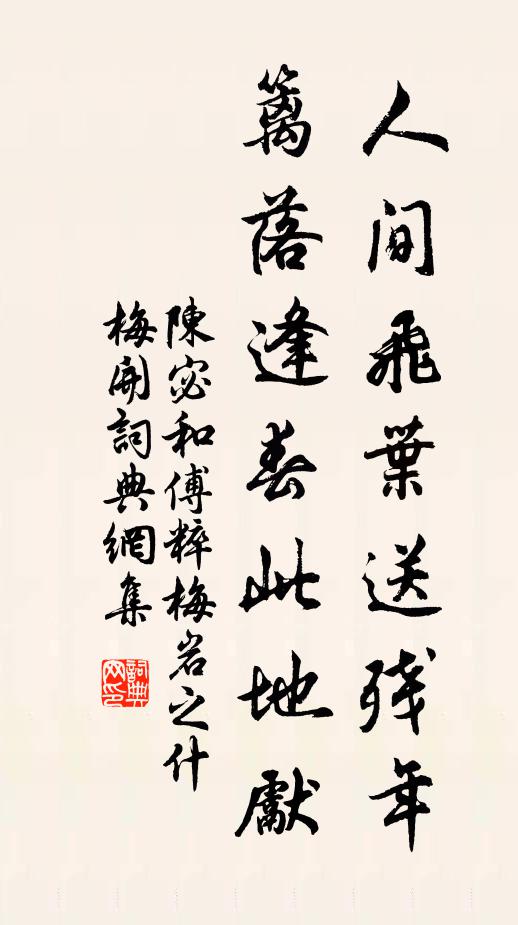 人間飛葉送殘年
籬落逢春此地獻
陳宓和傅粹梅岩之什
梅開詞典網集
詞典网印